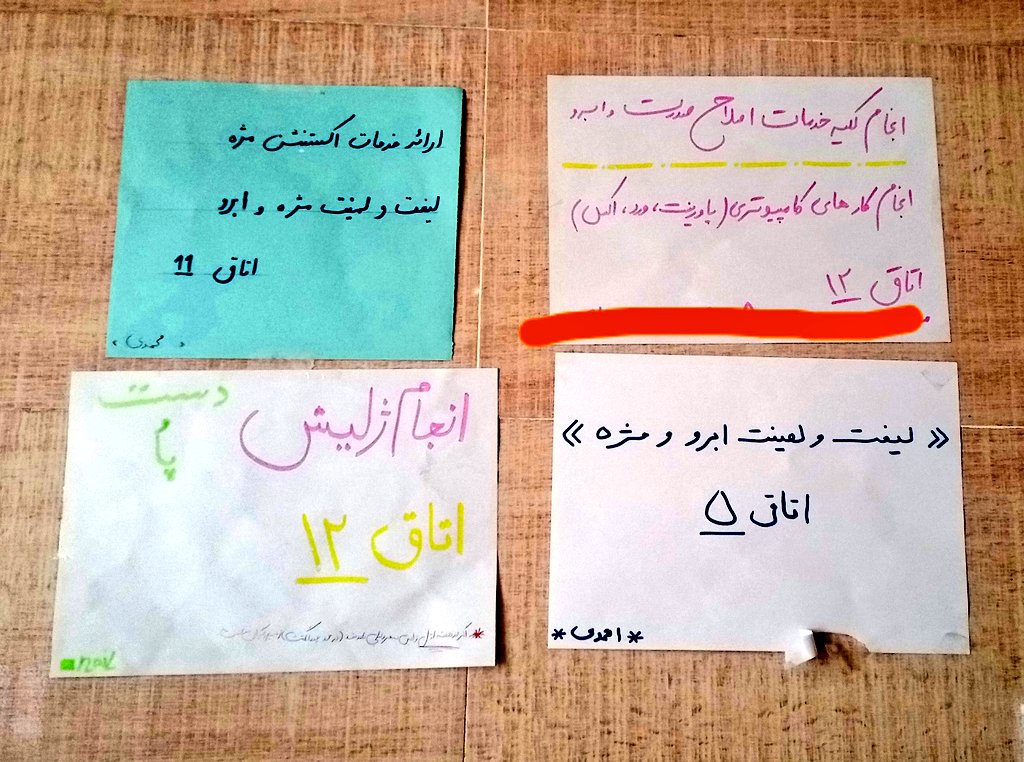 ارائه خدمات اکستنشن مژه
لیفت و لمینت مژه و ابرو
اتاق 11
« محمدی »
انجام کلیه خدمات اصلاح صورت و ابرو
انجام کارهای کامپیوتری (پاورپوینت، ورد، اکسل)
اتاق ۱۲
انجام ژلیش
دست
پا
اتاق ۱۲
nail
« لیفت و لمینت ابرو و مژه »
اتاق ۵
* احمدی *